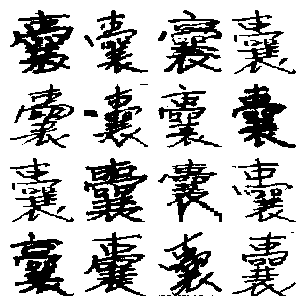 囊囊囊囊
囊囊囊囊
囊囊囊囊
囊囊囊囊